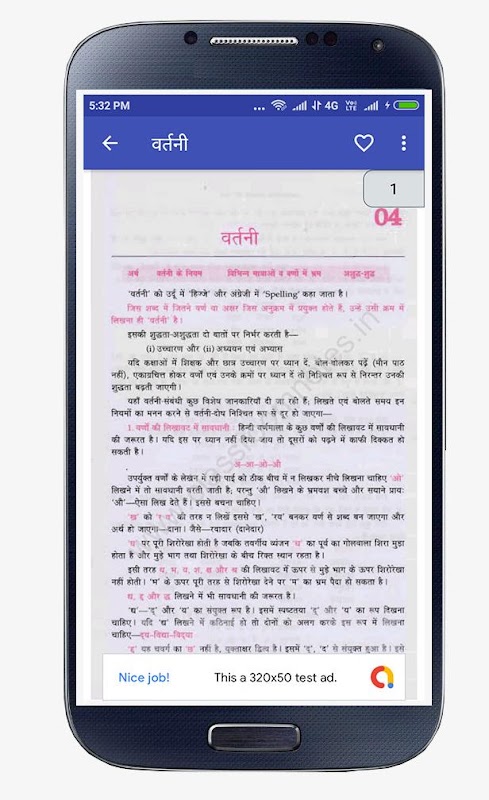 5:32 PM ... 4G VoLTE
वर्तनी
1
04
वर्तनी
अर्थ वर्तनी के नियम विभिन्न मात्राओं व वर्णों में भ्रम अशुद्ध-शुद्ध
'वर्तनी' को उर्दू में 'हिज्जे' और अंग्रेजी में 'Spelling' कहा जाता है।
जिस शब्द में जितने वर्ण या अक्षर जिस अनुक्रम में प्रयुक्त होते हैं, उन्हें उसी क्रम में
लिखना ही 'वर्तनी' है।
इसकी शुद्धता-अशुद्धता दो बातों पर निर्भर करती है—
(i) उच्चारण और (ii) अध्ययन एवं अभ्यास
यदि कक्षाओं में शिक्षक और छात्र उच्चारण पर ध्यान दें, बोल-बोलकर पढ़ें (मौन पाठ
नहीं), एकाग्रचित्त होकर वर्णों एवं उनके क्रमों पर ध्यान दें तो निश्चित रूप से निरन्तर उनकी
शुद्धता बढ़ती जाएगी।
यहाँ वर्तनी-संबंधी कुछ विशेष जानकारियाँ दी जा रही हैं; लिखते एवं बोलते समय इन
नियमों का मनन करने से वर्तनी-दोष निश्चित रूप से दूर हो जाएगा—
1. वर्णों की लिखावट में सावधानी : हिन्दी वर्णमाला के कुछ वर्णों की लिखावट में सावधानी
की जरूरत है। यदि इस पर ध्यान नहीं दिया जाय तो दूसरों को पढ़ने में काफी दिक्कत हो
सकती है।
अ-आ-ओ-औ
उपर्युक्त वर्णों के लेखन में पड़ी पाई को ठीक बीच में न लिखकर नीचे लिखना चाहिए 'ओ'
लिखने में तो सावधानी बरती जाती है; परन्तु 'औ' लिखने के भ्रमवश बच्चे और सयाने प्रायः
'औ'—ऐसा लिख देते हैं। इससे बचना चाहिए।
'ख' को 'र व' की तरह न लिखें इससे 'ख', 'रव' बनकर वर्ण से शब्द बन जाएगा और
अर्थ हो जाएगा—दाना। जैसे—रवादार (दानेदार)
पर पूरी शिरोरेखा होती है जबकि तवर्गीय व्यंजन 'ध' का पूर्व का गोलवाला शिरा मुड़ा
होता है और मुड़े भाग तथा शिरोरेखा के बीच रिक्त स्थान रहता है।
इसी तरह थ, भ, य, श, क्ष और श्र की लिखावट में ऊपर से मुड़े भाग के ऊपर शिरोरेखा
नहीं होती। 'भ' के ऊपर पूरी तरह से शिरोरेखा देने पर 'म' का भ्रम पैदा हो सकता है।
लिखने में भी सावधानी की जरूरत है।
'द्य'—'द्' और 'य' का संयुक्त रूप है। इसमें स्पष्टतया 'द्' और 'य' का रूप दिखना
चाहिए। यदि 'द्य' लिखने में कठिनाई हो तो दोनों को अलग करके इस रूप में लिखना
चाहिए—द्य-विद्या-विद्‌या
यह चवर्ग का 'छ' नहीं है, युक्ताक्षर द्वित्व है। इसमें 'द्', 'द' से संयुक्त हुआ है। इसे
Nice job! This a 320x50 test ad.